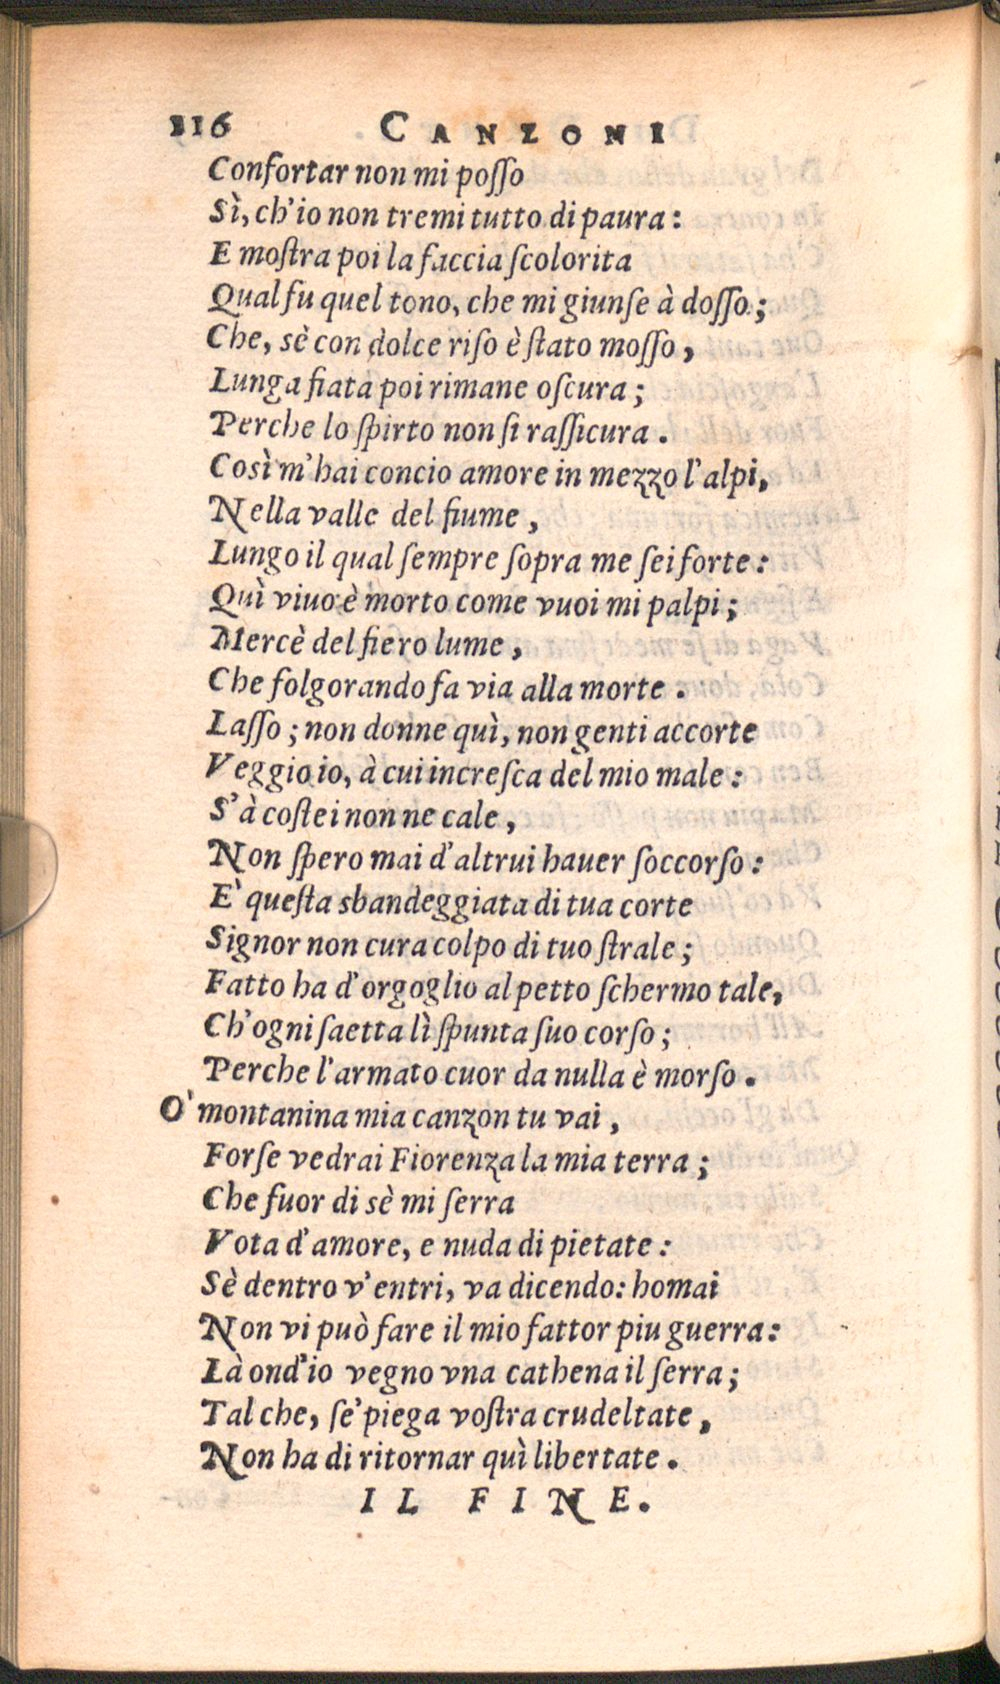 116 CANZONI
Confortar non mi poſſo
Sì, ch'io non tremi tutto di paura:
E moſtra poi la faccia ſcolorita
Qual fu quel tono, che mi giunſe à doſſo;
Che, sè con dolce riſo è ſtato moſſo,
Lunga fiata poi rimane oſcura;
Perche lo ſpirto non ſi raſſicura.
Così m'hai concio amore in mezzo l'alpi,
Nella valle del fiume,
Lungo il qual ſempre ſopra me sei forte:
Quì viuo è morto come vuoi mi palpi;
Mercè del fiero lume,
Che folgorando fa via alla morte.
Laſſo; non donne quì, non genti accorte
Veggio io, à cui increſca del mio male:
S'à coſtei non ne cale,
Non ſpero mai d'altrui hauer ſoccorſo:
E' queſta sbandeggiata di tua corte
Signor non cura colpo di tuo ſtrale;
Fatto ha d'orgoglio al petto ſchermo tale,
Ch'ogni ſaetta lì ſpunta ſuo corſo;
Perche l'armato cuor da nulla è morſo.
O' montanina mia canzon tu vai,
Forſe vedrai Fiorenza la mia terra;
Che fuor di sè mi ſerra
Vota d'amore, e nuda di pietate:
Sè dentro v'entri, va dicendo: homai
Non vi può fare il mio fattor piu guerra:
Là ond'io vegno vna cathena il ſerra;
Tal che, ſe'piega voſtra crudeltate,
Non ha di ritornar quì libertate.
IL FINE.